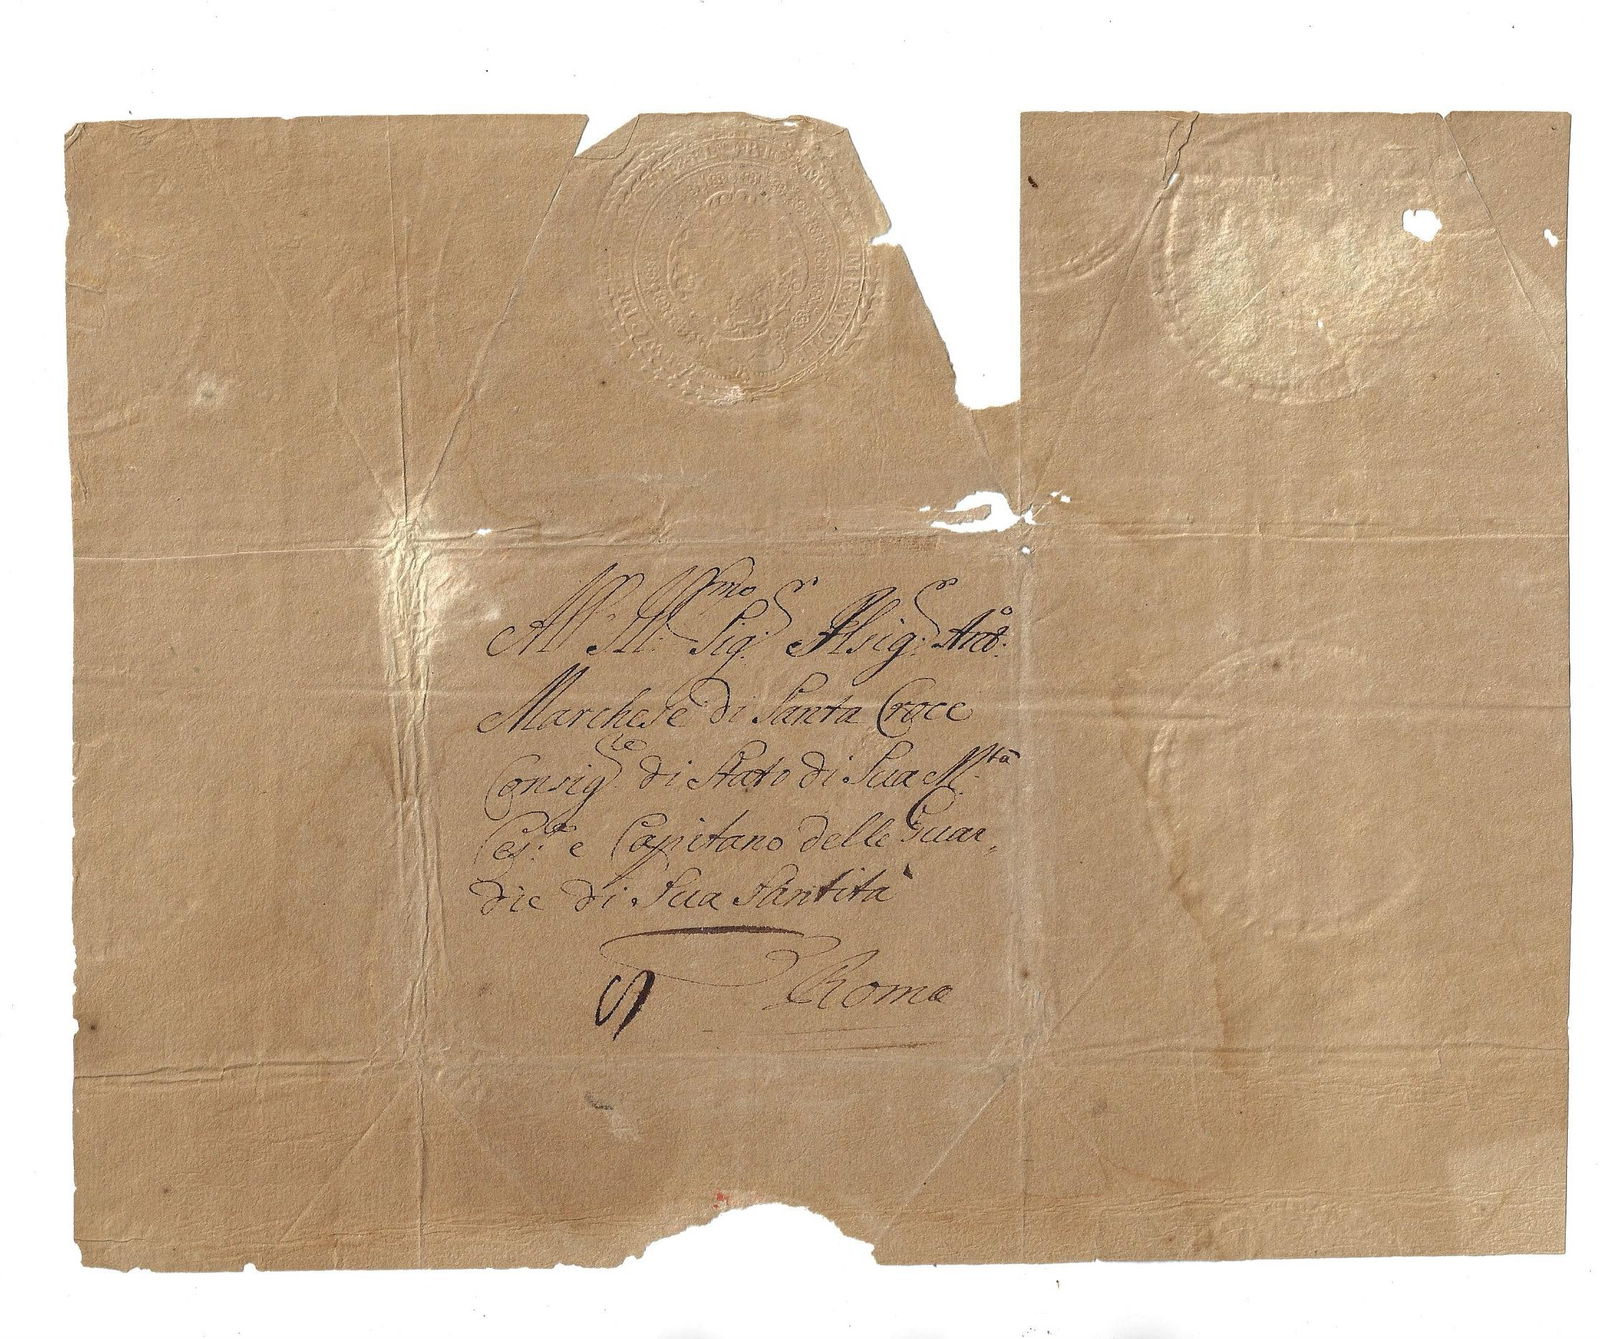 All' Ill:mo Sig:r e
Marchese di Santa Croce
Consig:re di Stato di Sua M:tà
Ces:a e Capitano delle Guar„
die di Sua Santità
Roma